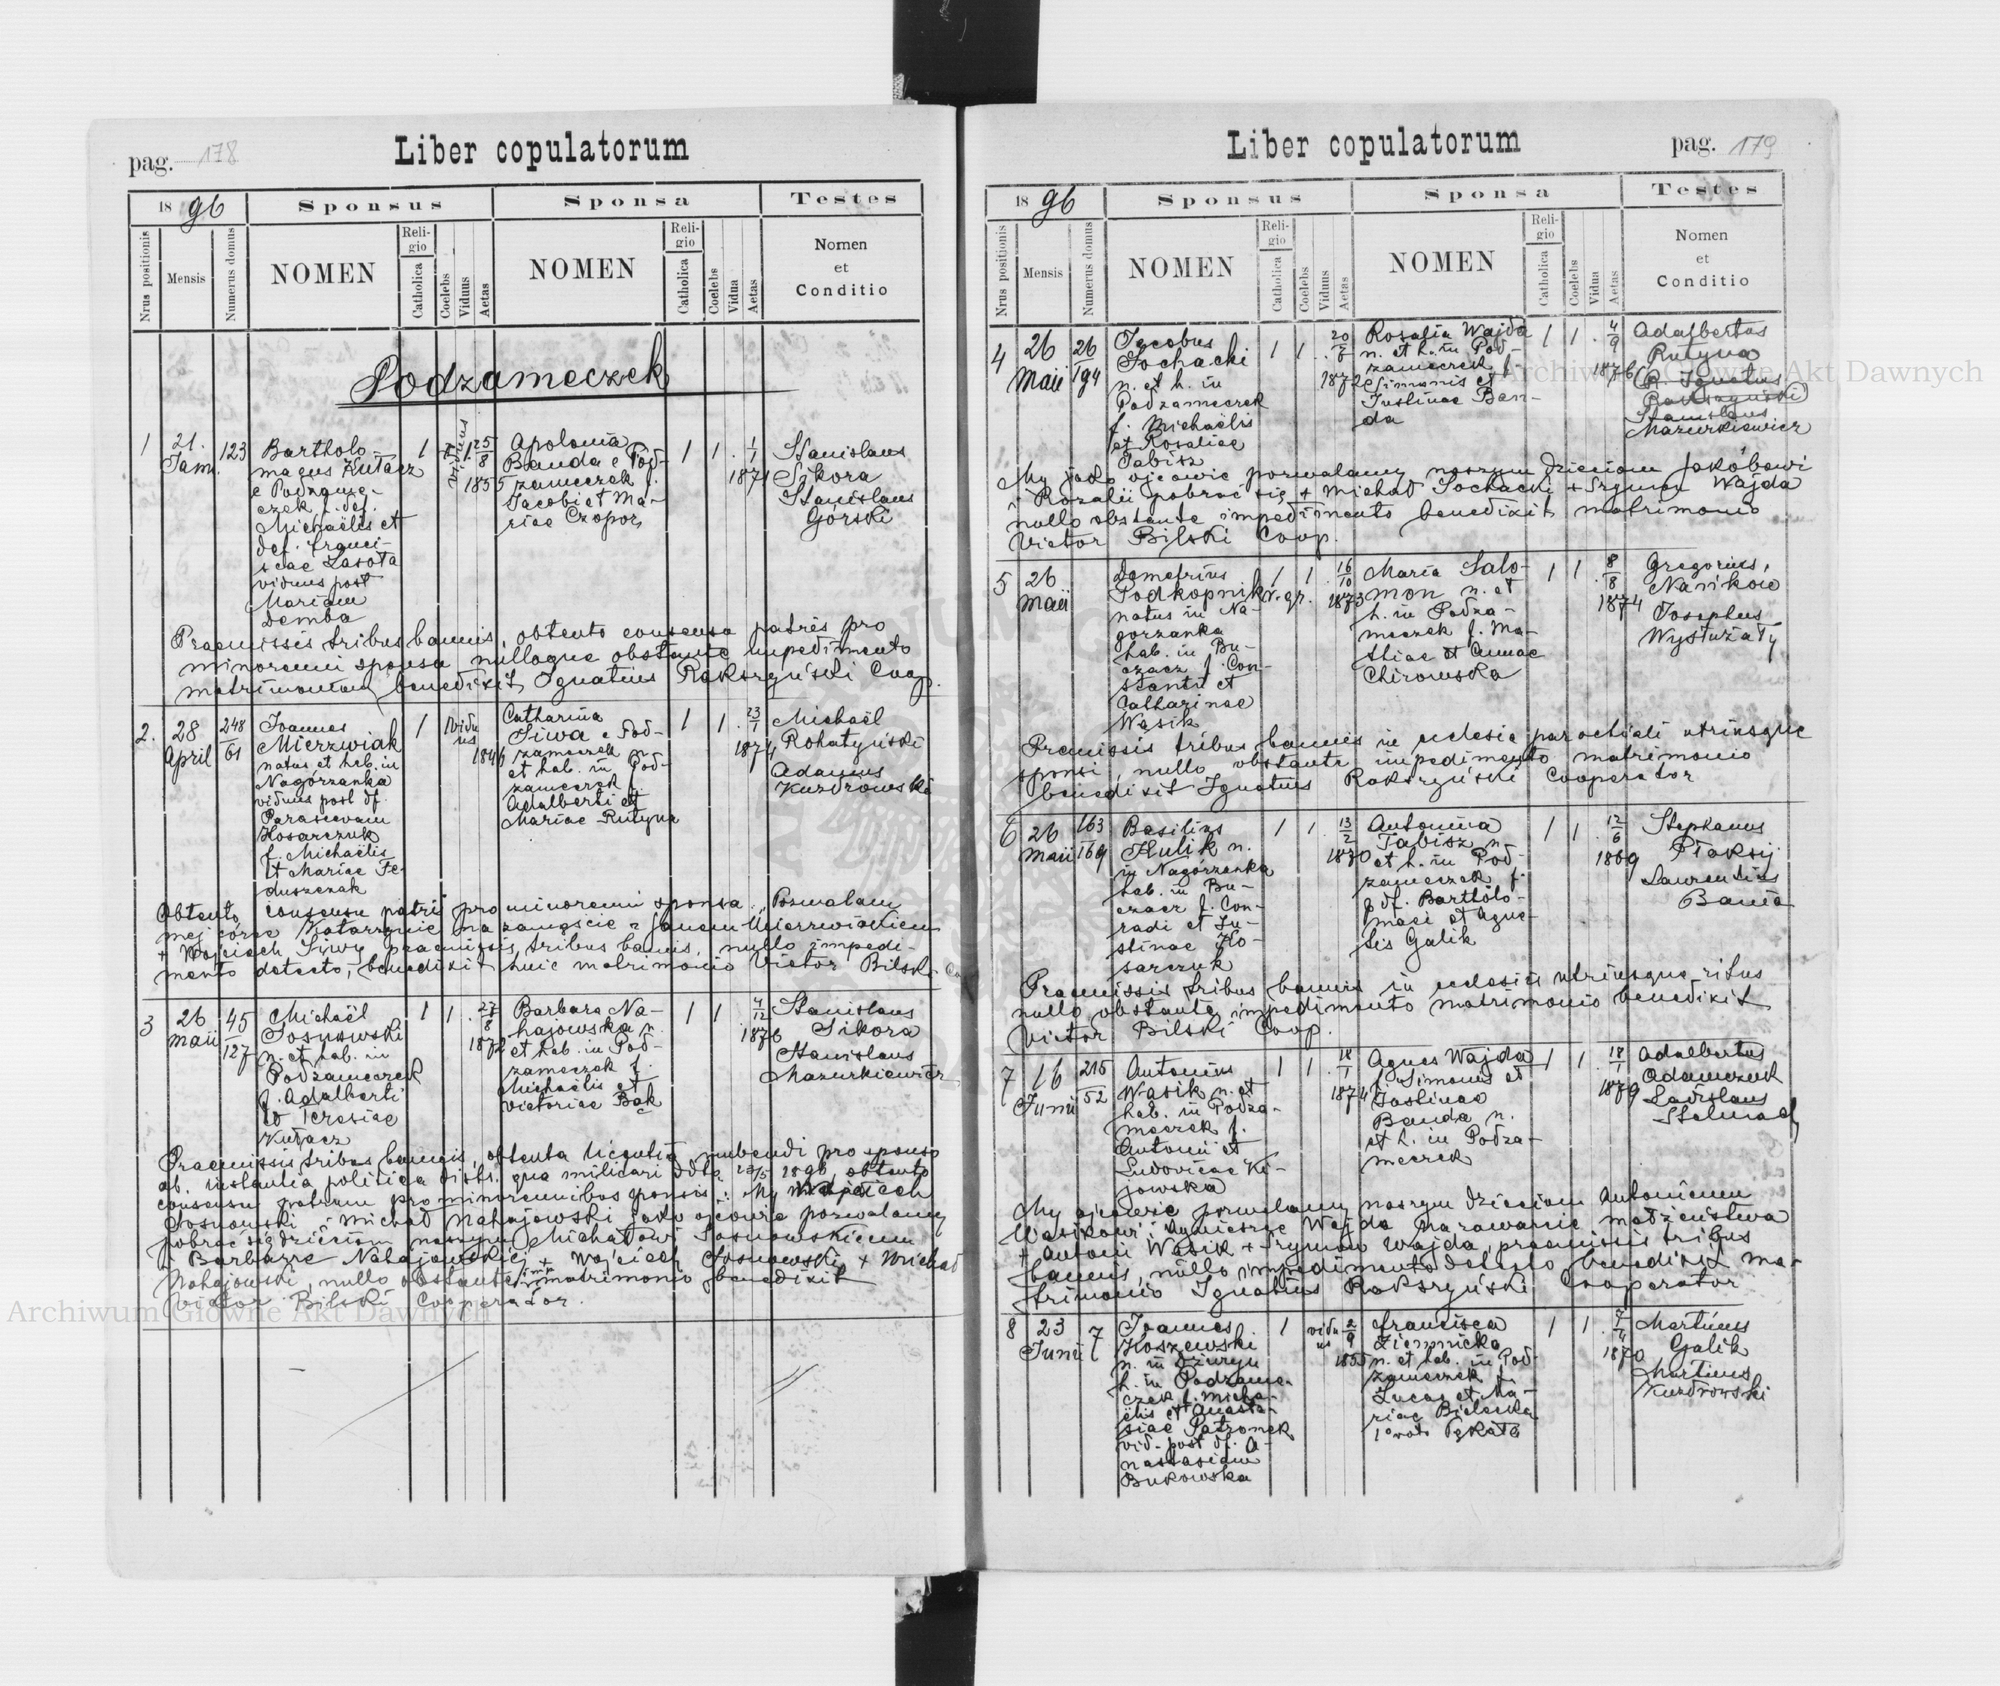 pag. 178
Liber copulatorum
18 96
Sponsus
Sponsa
Testes
Nrus positionis
Mensis
Numerus domus
NOMEN
Religio
Catholica
Coelebs
Viduus
Aetas
NOMEN
Religio
Catholica
Coelebs
Vidua
Aetas
Nomen
et
Conditio
Podzameczek
1
21.
Jan.
123
Bartholo-
maeus Kułacz
e Podzame-
czek f. def.
Michaëlis et
def. Franci-
scae Lasota
viduus post
Mariam
Demba
1
viduus
25
8
1855
Apolonia
Banda e Pod-
zameczek f.
Jacobi et Ma-
riae Czopor
1
1
1
1
1871
Stanislaus
Sikora
Stanislaus
Górski
Praemissis tribus bannis, obtento consensu patris pro
minorenni sponsa nulloque obstante impedimento
matrimonium benedixit Ignatius Rakszyński Coop.
2.
28
April
248
61
Joannes
Mierzwiak
natus et hab. in
Nagórzanka
viduus post df.
Parascevam
Kosarczuk
f. Michaëlis
et Mariae Fe-
duszczak
1
vidu
us
1846
Catharina
Siwa e Pod-
zameczek n.
et hab. in Pod-
zameczek f.
Adalberti et
Mariae Rutyna
1
1
23
1
1874
Michaël
Rohatyński
Adamus
Kuzdrowski
Obtento consensu patris pro minorenni sponsa: "Pozwalam
mej córce Katarzynie na zamęście z Janem Mierzwiakiem
+ Wojciech Siwy praemissis tribus bannis, nullo impedi-
mento detecto, benedixit huic matrimonio Victor Bilski
3
26
Maii
45
127
Michaël
Sosnowski
n. et hab. in
Podzameczek
f. Adalberti
et Teresiae
Kułacz
1
1
27
8
1872
Barbara Na-
hajowska n.
et hab. in Pod-
zameczek f.
Michaëlis et
Victoriae Bąk
1
1
4
12
1876
Stanislaus
Sikora
Stanislaus
Mazurkiewicz
Praemissis tribus bannis, obtenta licentia nubendi pro sponso
ab instantia politica distr. qua militari ddto 23/5 1896, obtento
consensu patrum pro minorennibus sponsis: My Wojciech
Sosnowski i Michał Nahajowski jako ojcowie pozwalamy
pobrać się dzieciom naszym Michałowi Sosnowskiemu
i Barbarze Nahajowskiej + Wojciech Sosnowski + Michał
Nahajowski, nullo obstante imp. matrimonio benedixit
Victor Bilski Cooperator.
Liber copulatorum
pag. 179
18 96
Sponsus
Sponsa
Testes
Nrus positionis
Mensis
Numerus domus
NOMEN
Religio
Catholica
Coelebs
Viduus
Aetas
NOMEN
Religio
Catholica
Coelebs
Vidua
Aetas
Nomen
et
Conditio
4
26
Maii
26
194
Jacobus
Sochacki
n. et h. in
Podzameczek
f. Michaëlis
et Rosaliae
Tabisz
1
1
20
7
1872
Rosalia Wajda
n. et h. in Pod-
zameczek f.
Simonis et
Justinae Ban-
da
1
1
4
9
1876
Adalbertus
Rutyna
(R. Ignatius
Rakszyński)
Stanislaus
Mazurkiewicz
My jako ojcowie pozwalamy naszym dzieciom Jakóbowi
i Rozalii pobrać się + Michał Sochacki + Szymon Wajda
nullo obstante impedimento benedixit matrimonio
Victor Bilski Coop.
5
26
Maii
Demetrius
Podkopnik
natus in Na-
gorzanka
hab. in Bu-
czacz f. Con-
stantii et
Catharinae
Wąsik
1
r. gr.
1
16
10
1873
Maria Salo-
mon n. et
h. in Podza-
meczek f. Ma-
thiae et Annae
Chirowska
1
1
8
8
1874
Gregorius
Nańkow
Josephus
Wysłużały
Premissis tribus bannis in eclesia parochiali utriusque
sponsi, nullo obstante impedimento matrimonio
benedixit Ignatius Rakszyński Cooperator
6
26
Maii
163
169
Basilius
Kulik n.
in Nagórzanka
hab. in Bu-
czacz f. Con-
radi et Ju-
stinae Ko-
sarczuk
1
1
13
2
1870
Antonina
Tabisz n.
et h. in Pod-
zameczek f.
p. df. Bartholo-
maei et Agne-
tis Galik
1
1
12
6
1869
Stephanus
Ptaksij
Laurentius
Bania
Praemissis tribus bannis in eclesiis utriusque ritus
nullo obstante impedimento matrimonio benedixit
Victor Bilski Coop.
7
16
Junii
215
52
Antonius
Wąsik n. et
hab. in Podza-
meczek f.
Antonii et
Ludovicae Ki-
jowska
1
1
18
1
1874
Agnes Wajda
f. Simonis et
Justinae
Banda n.
et h. in Podza-
meczek
1
1
18
1
1879
Adalbertus
Adamczuk
Ladislaus
Stelmach
My ojcowie pozwalamy naszym dzieciom Antoniemu
Wąsikowi i Agnieszce Wajda na zawarcie małżeństwa
+ Antoni Wąsik + Szymon Wajda, praemissis tribus
bannis, nullo impedimento detecto benedixit ma-
trimonio Ignatius Rakszyński Cooperator
8
23
Junii
7
Joannes
Koszewski
n. in Dżuryn
h. in Podzame-
czek f. Micha-
ëlis et Anasta-
siae Patronek
vid. post df. A-
nastasiam
Bukowska
1
vidu
us
2
9
1855
Francisca
Ziemnicka
n. et hab. in Pod-
zameczek f.
Lucae et Ma-
riae Bielecka
1o voto Pękata
1
1
7
4
1870
Martinus
Galik
Martinus
Kuzdrowski
Archiwum Główne Akt Dawnych
Archiwum Główne Akt Dawnych